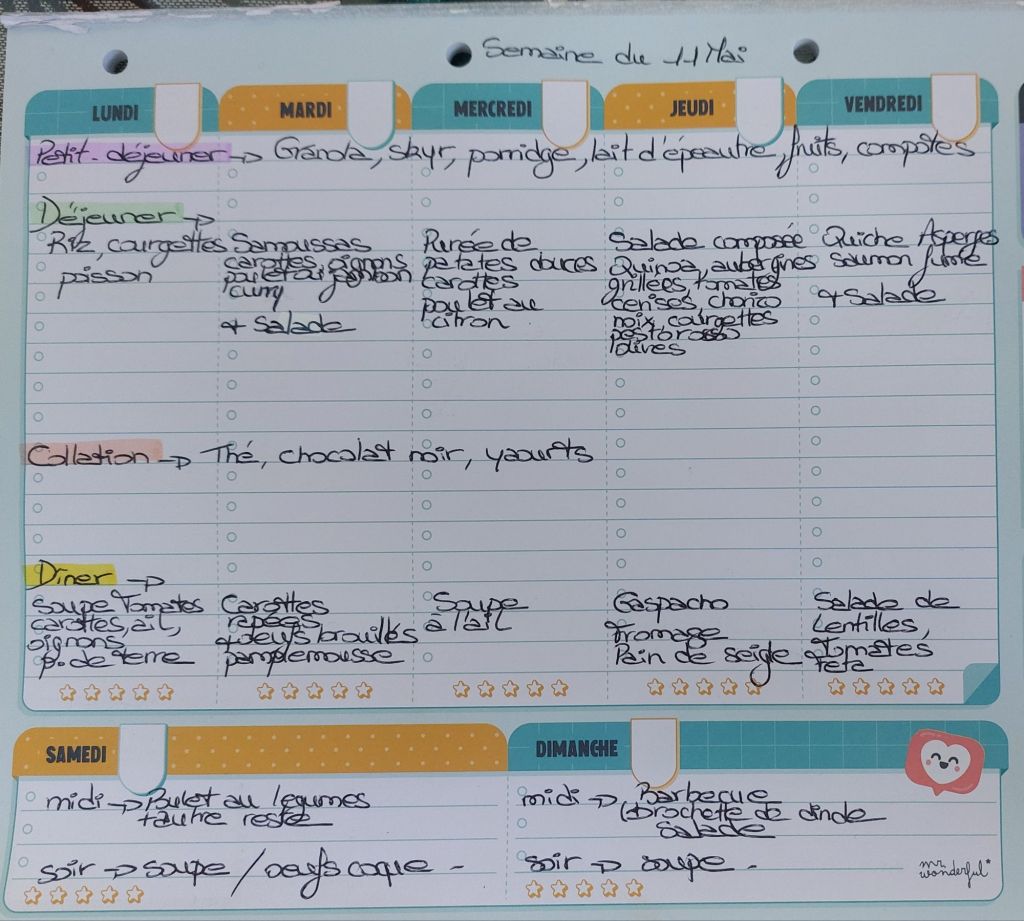 Semaine du 11 Mai
LUNDI MARDI MERCREDI JEUDI VENDREDI
Petit-déjeuner → Granola, skyr, porridge, lait d'épeautre, fruits, compotes
Déjeuner →
Riz, courgettes
poisson
Samoussas
carottes, oignons
poulet ou jambon
curry
+ Salade
Purée de
patates douces
carottes
poulet au
citron
Salade composée
Quinoa, aubergines
grillées, tomates
cerises, chorizo
noix, courgettes
pesto rosso
olives
Quiche Asperges
saumon fumé
+ Salade
Collation → Thé, chocolat noir, yaourts
Dîner →
Soupe Tomates
carottes, ail,
oignons
p. de terre
Carottes
rapées
+ oeufs brouillés
pamplemousse
Soupe
à l'ail
Gaspacho
fromage
Pain de seigle
Salade de
Lentilles,
Tomates
feta
SAMEDI
midi → Poulet au légumes
+ autre reste
soir → soupe / oeufs coque -
DIMANCHE
midi → Barbecue
brochette de dinde
Salade
soir → soupe -
mr. wonderful*